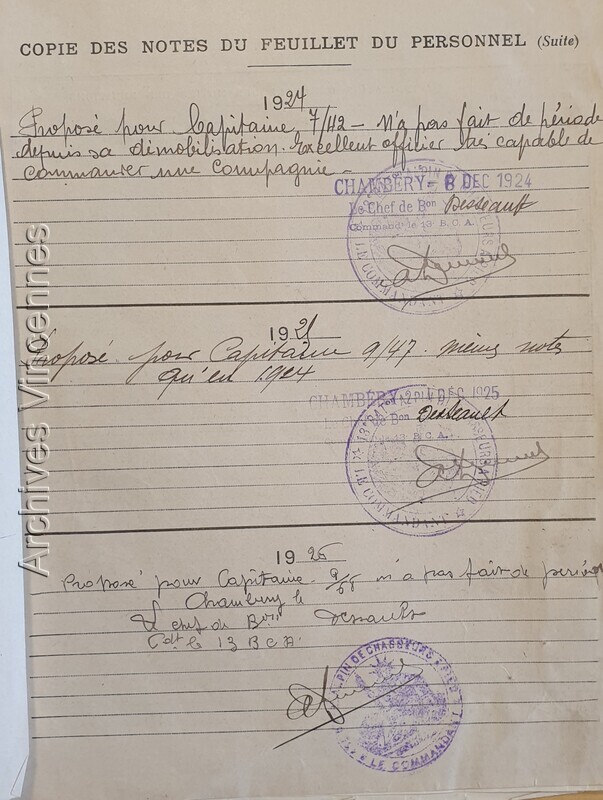 COPIE DES NOTES DU FEUILLET DU PERSONNEL (Suite)
1924
Proposé pour Capitaine 7/42 – N'a pas fait de période
depuis sa démobilisation. Excellent officier très capable de
commander une compagnie –
CHAMBÉRY – 8 DEC 1924
Le Chef de Bon Desseault
Commandt le 13e B.C.A.
LE COMMANDANT
1925
Proposé pour Capitaine 9/47. mêmes notes
qu'en 1924
CHAMBÉRY DEC 1925
Bon Desseault
B.C.A.
LE COMMANDANT
1926
Proposé pour Capitaine n'a pas fait de
Chambéry le
Le chef de Bon
Cdt le 13 BCA
ALPIN DE CHASSEURS A PIED
LE COMMANDANT
Archives Vincennes